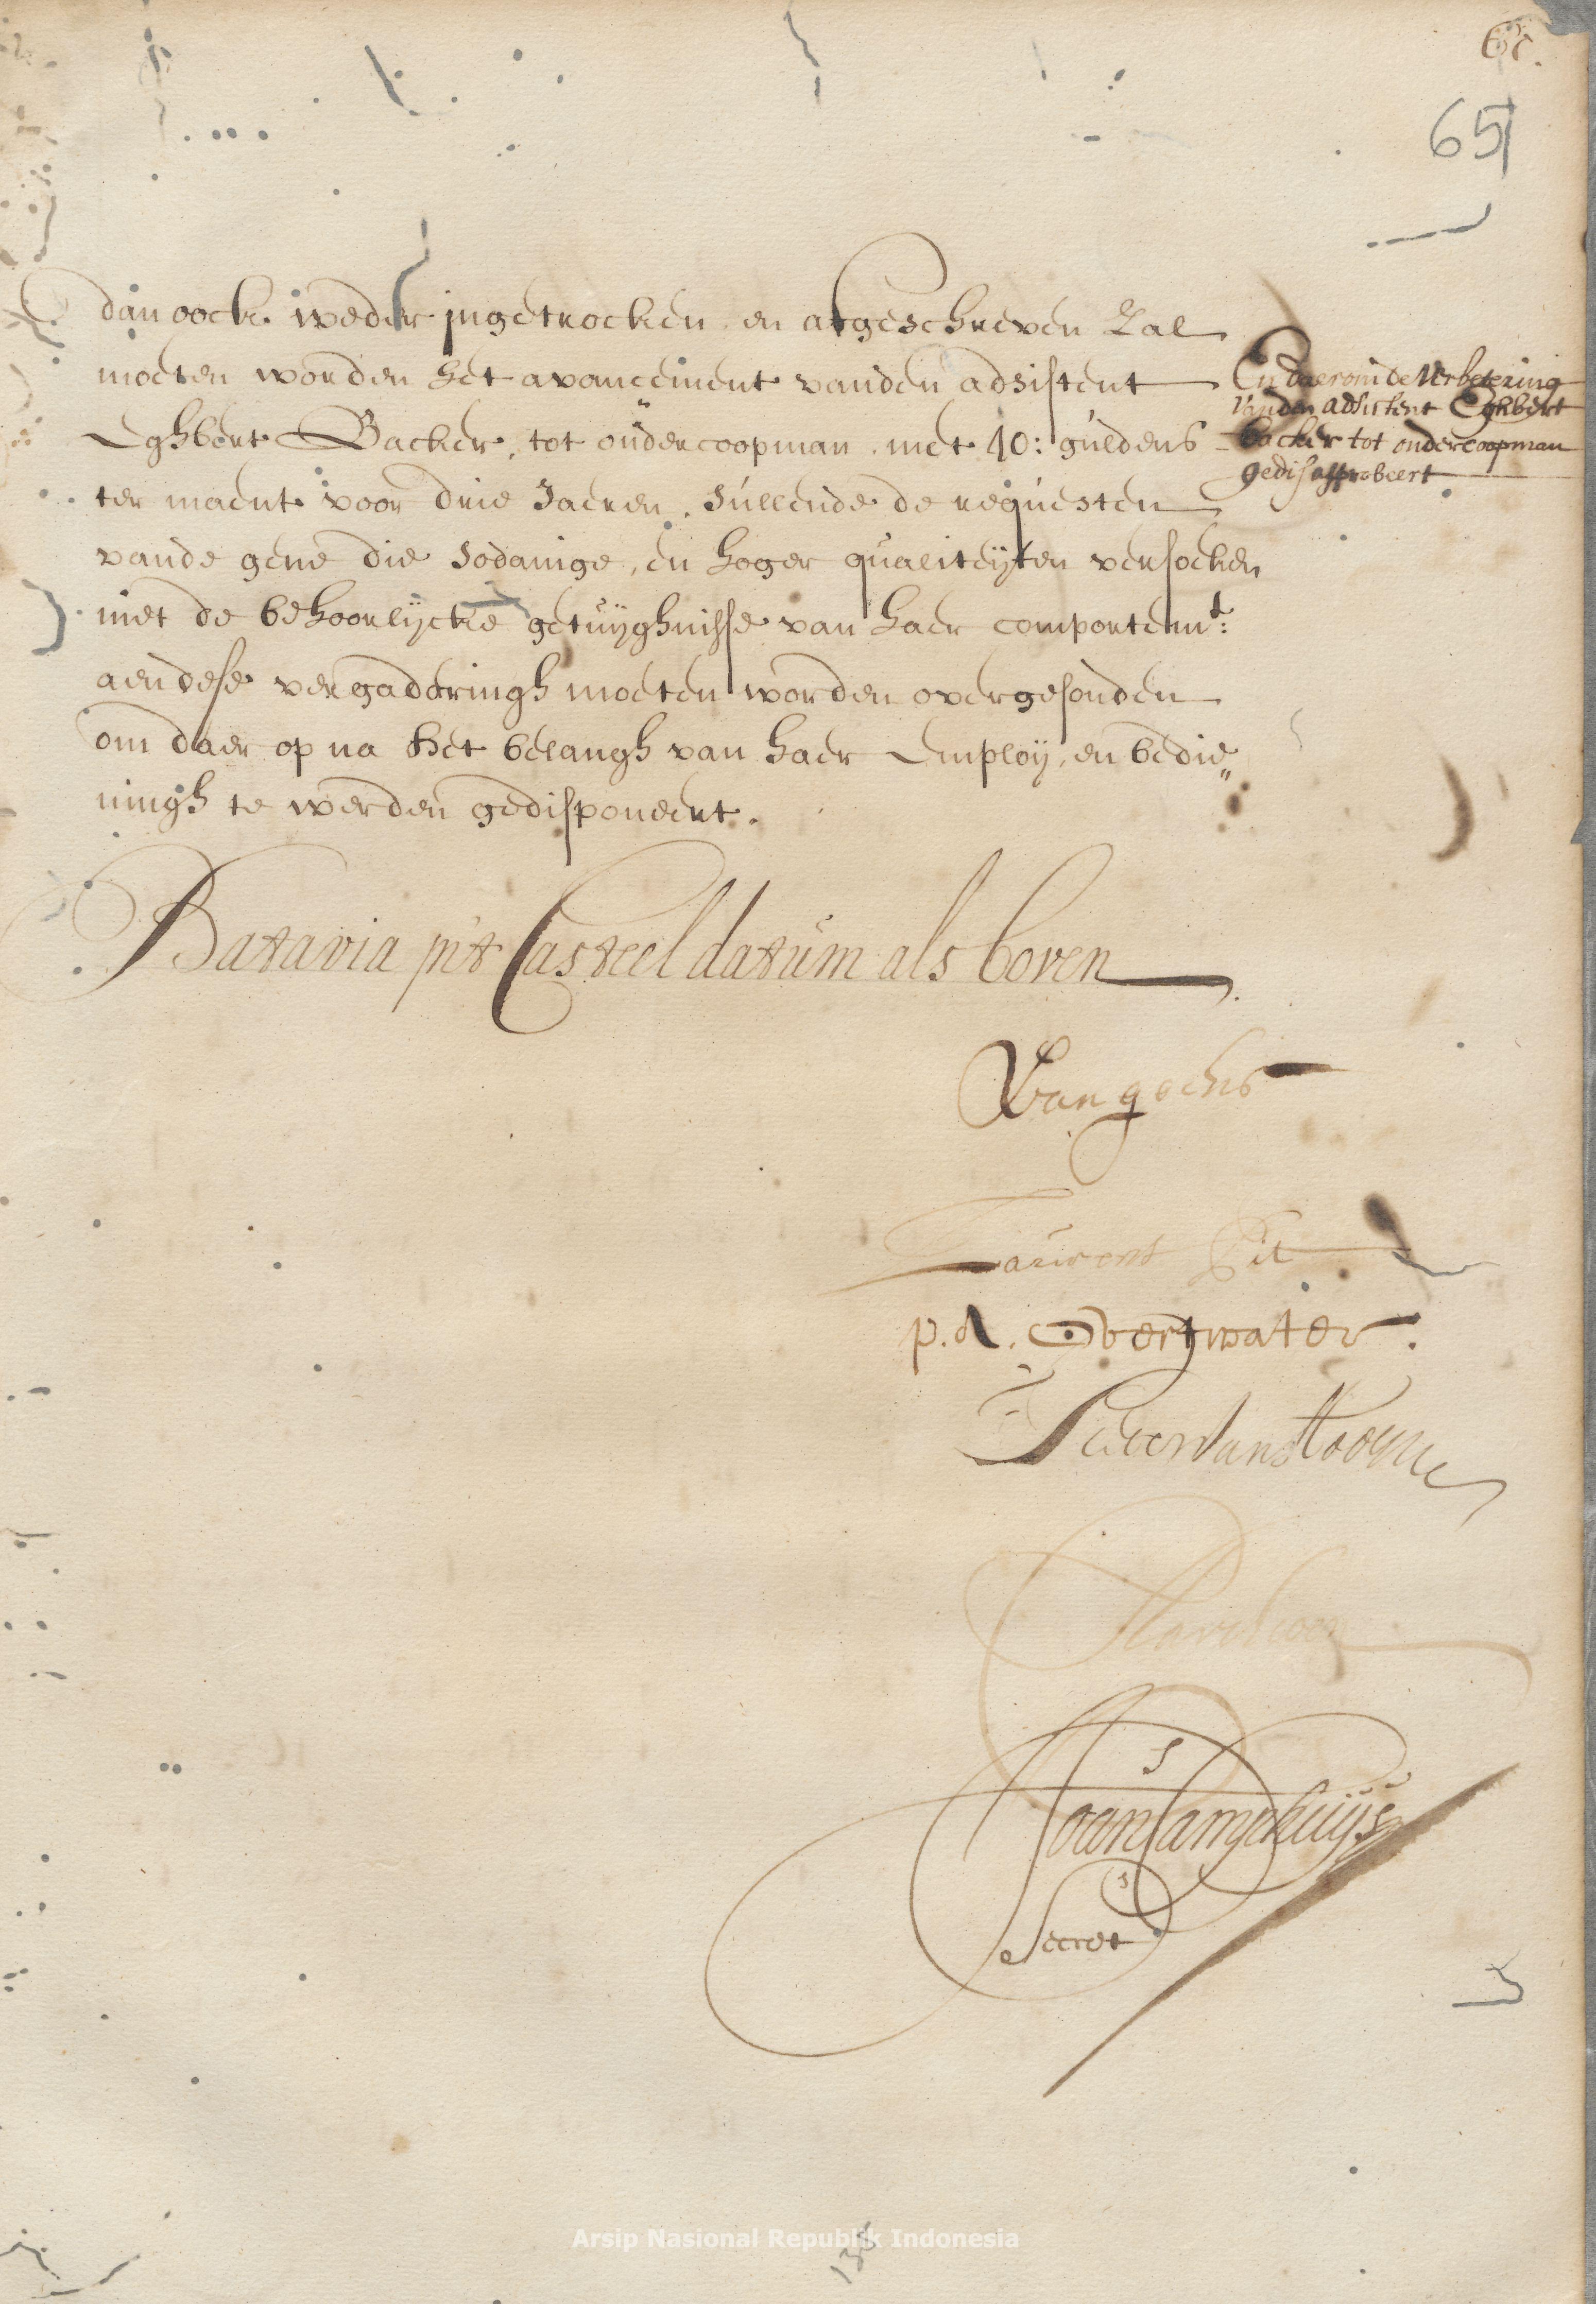 65
dan oock weder ingetrocken en afgeschreven zal
moeten worden het avancement vanden adsistent
Eghbert Backer, tot ondercoopman met 40: guldens
ter maent voor drie Jaeren, sullende de requesten
vande gene die sodanige, en hoger qualiteijten versoeken
met de behoorlijcke getuijghnisse van haer comportemt:
aendese vergaderingh moeten worden overgesonden
om daer op na het belangh van haer employ, en bedie„
ningh te werden gedisponeert.
En daerom de verbetering
vanden adsistent Eghbert
backer tot ondercoopman
gedisapprobeert
Batavia in't Casteel datum als boven
Van goens
Laurens Pit
p. A. Overtwater.
Pieter van Hoorn
Joan Camphuijs
Secret
Arsip Nasional Republik Indonesia